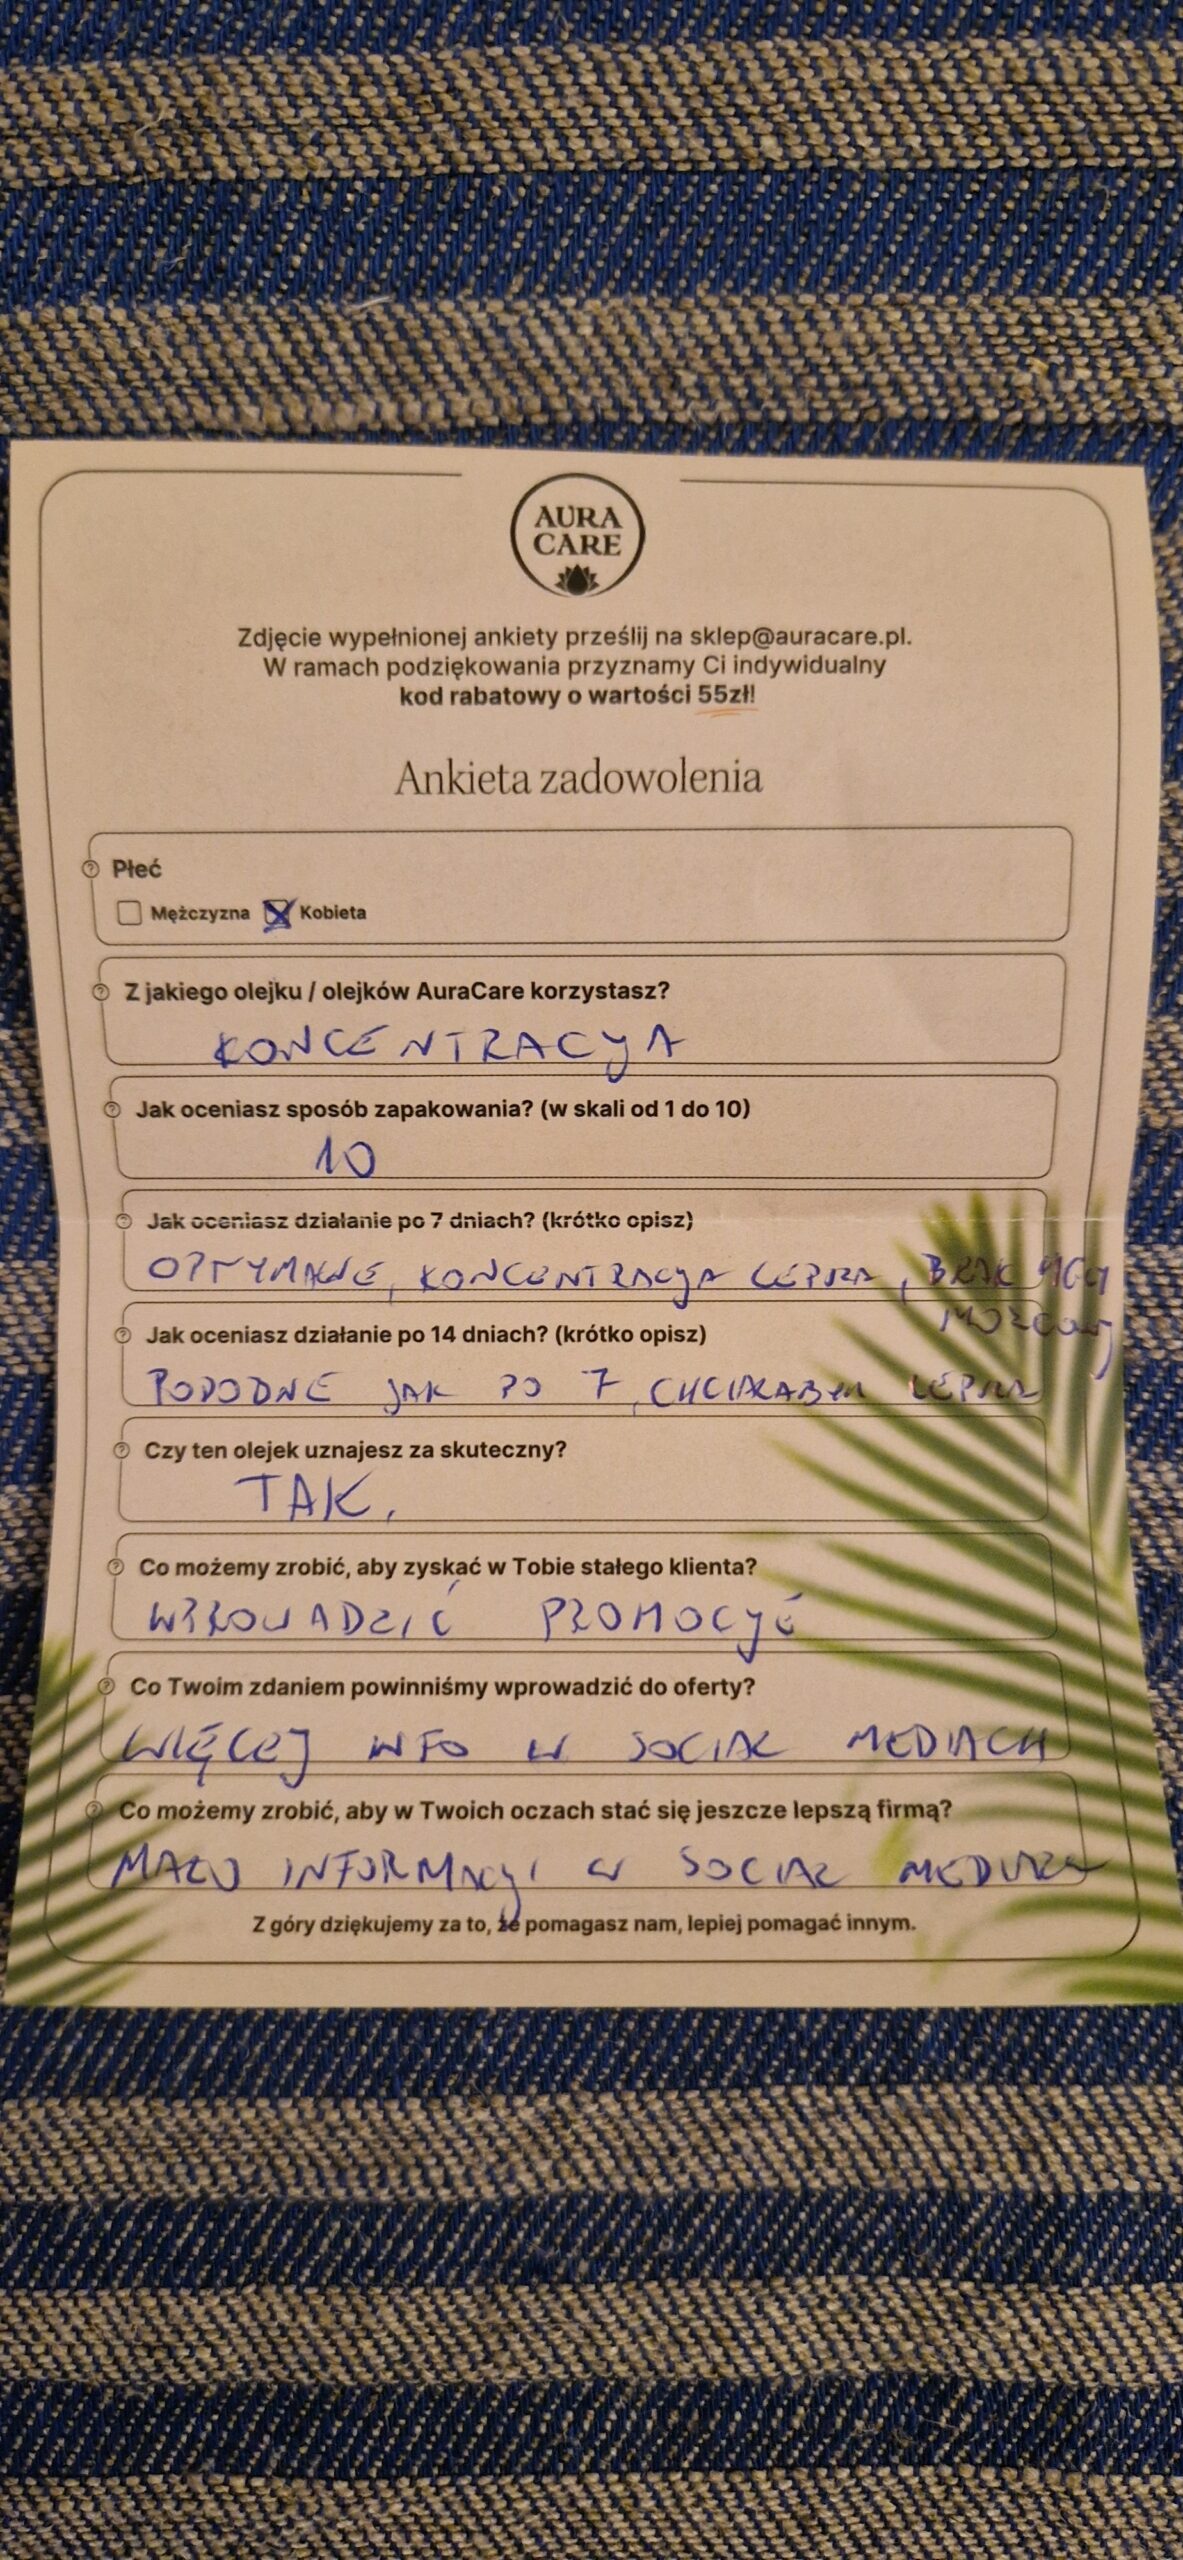 AURA
CARE
Zdjęcie wypełnionej ankiety prześlij na sklep@auracare.pl.
W ramach podziękowania przyznamy Ci indywidualny
kod rabatowy o wartości 55zł!
Ankieta zadowolenia
Płeć
Mężczyzna Kobieta
Z jakiego olejku / olejków AuraCare korzystasz?
KONCENTRACJA
Jak oceniasz sposób zapakowania? (w skali od 1 do 10)
10
Jak oceniasz działanie po 7 dniach? (krótko opisz)
OPTYMALNE, KONCENTRACJA LEPSZA, BRAK MGŁY
MÓZGOWEJ
Jak oceniasz działanie po 14 dniach? (krótko opisz)
PODODNE JAK PO 7, CHCIAŁABYM LEPSZE
Czy ten olejek uznajesz za skuteczny?
TAK.
Co możemy zrobić, aby zyskać w Tobie stałego klienta?
WPROWADZIĆ PROMOCJĘ
Co Twoim zdaniem powinniśmy wprowadzić do oferty?
WIĘCEJ INFO W SOCIAL MEDIACH
Co możemy zrobić, aby w Twoich oczach stać się jeszcze lepszą firmą?
MAŁO INFORMACJI W SOCIAL MEDIACH
Z góry dziękujemy za to, że pomagasz nam, lepiej pomagać innym.